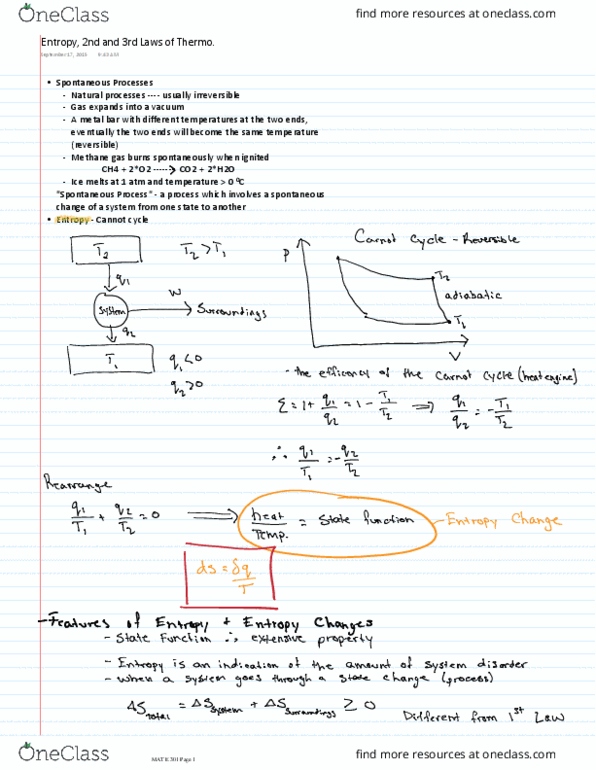 OneClass
find more resources at oneclass.com
Entropy, 2nd and 3rd Laws of Thermo.
September 17, 2013
• Spontaneous Processes
- Natural processes ---- usually irreversible
- Gas expands into a vacuum
- A metal bar with different temperatures at the two ends,
eventually the two ends will become the same temperature
(reversible)
- Methane gas burns spontaneously when ignited
CH4 + 2*O2 -----> CO2 + 2*H2O
- Ice melts at 1 atm and temperature > 0 °C
"Spontaneous Process" - a process which involves a spontaneous
change of a system from one state to another
• Entropy - Cannot cycle
T2
T2 > T1
q1
System
w
Surroundings
q2
T1
q1 < 0
q2 > 0
Carnot Cycle - Reversible
P
T2
adiabatic
T1
V
- the efficiency of the Carnot Cycle (heat engine)
Σ = 1 + q1/q2 = 1 - T1/T2 ⇒ q1/q2 = - T1/T2
∴ q1/T1 = - q2/T2
Rearrange
q1/T1 + q2/T2 = 0 ⇒ heat/Temp. = State function - Entropy Change
ds = δq/T
- Features of Entropy + Entropy Changes
- State Function ∴ extensive property
- Entropy is an indication of the amount of system disorder
- when a system goes through a state change (process)
ΔS total = ΔS system + ΔS surroundings ≥ 0
Different from 1st Law
OneClass
MATE 301 Page 1
find more resources at oneclass.com